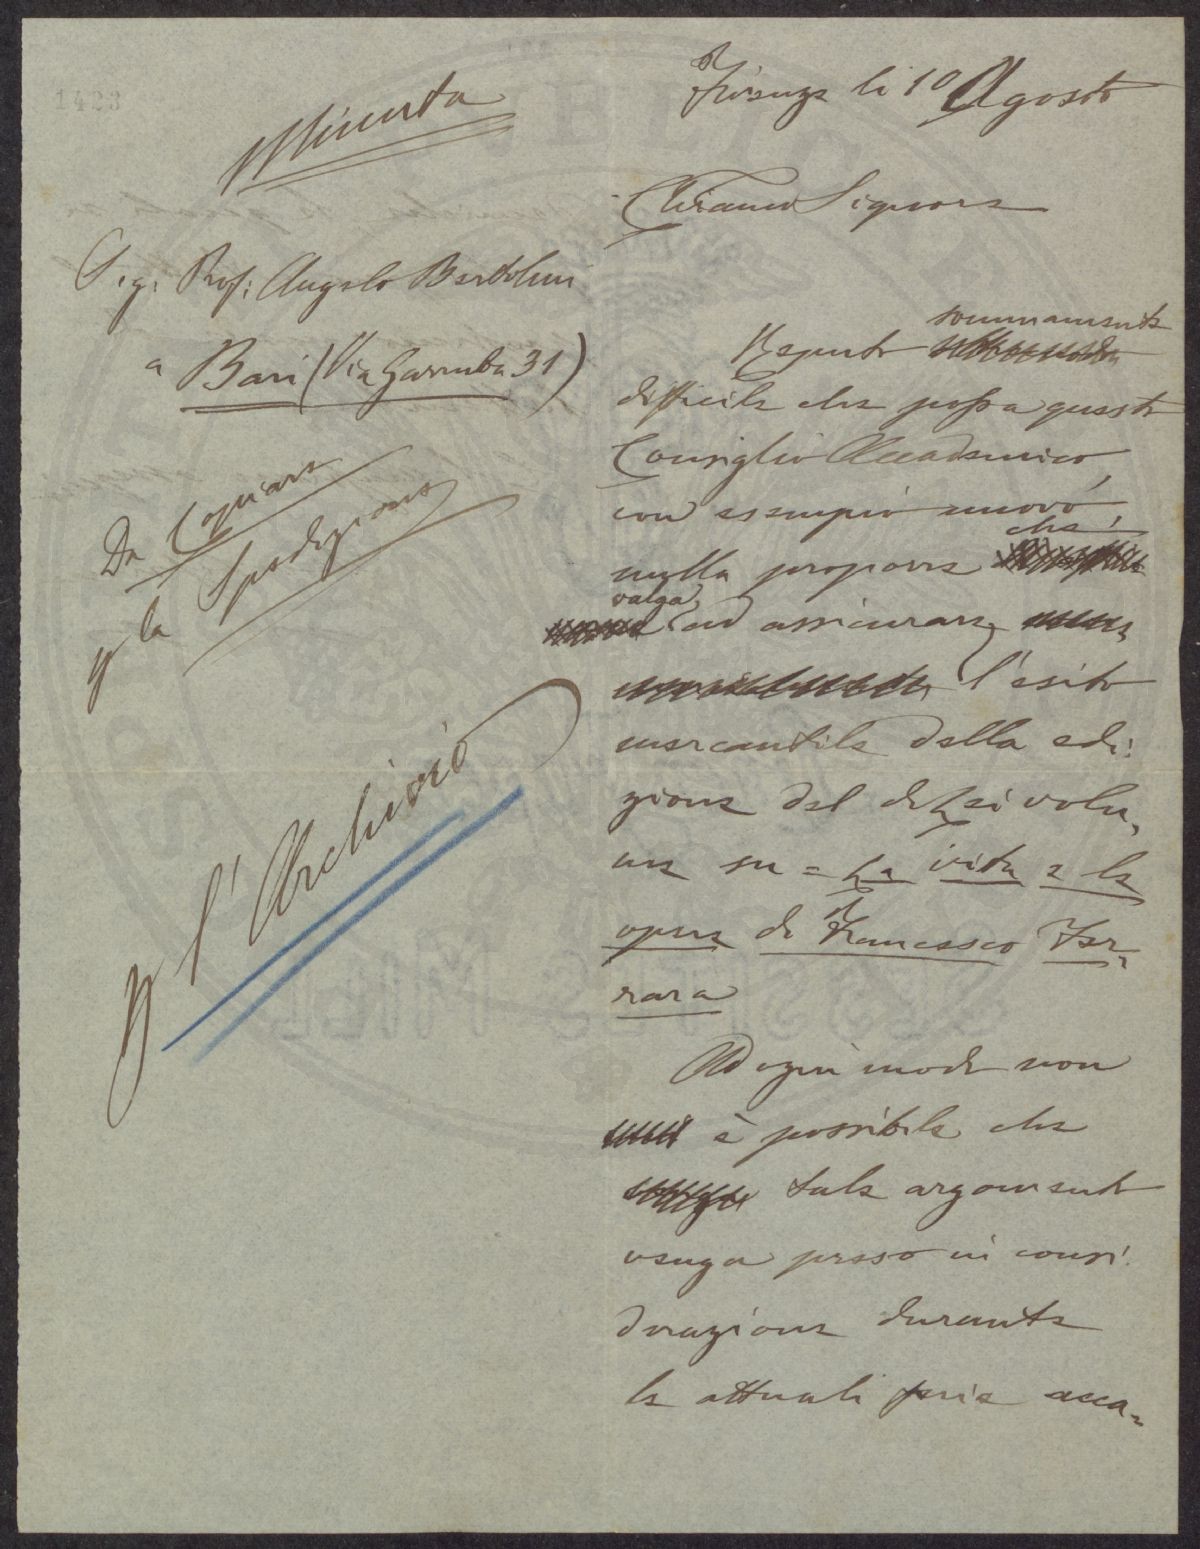 1423
Minuta
Firenze li 10 Agosto
Chiarmo Signore
Sig: Prof: Angelo Bertolini
a Bari (Via Garruba 31)
Da Copiare
p la Spedizione
p l'Archivio
Reputo sommamente
difficile che possa questo
Consiglio Accademico,
con esempio nuovo,
nulla proporre che
valga ad assicurare
l'esito
mercantile della edi-
zione del di Lei volu-
me su = La vita e le
opere di Francesco Fer-
rara
Ad ogni modo non
è possibile che
tale argomento
venga preso in consi-
derazione durante
le attuali ferie acca-